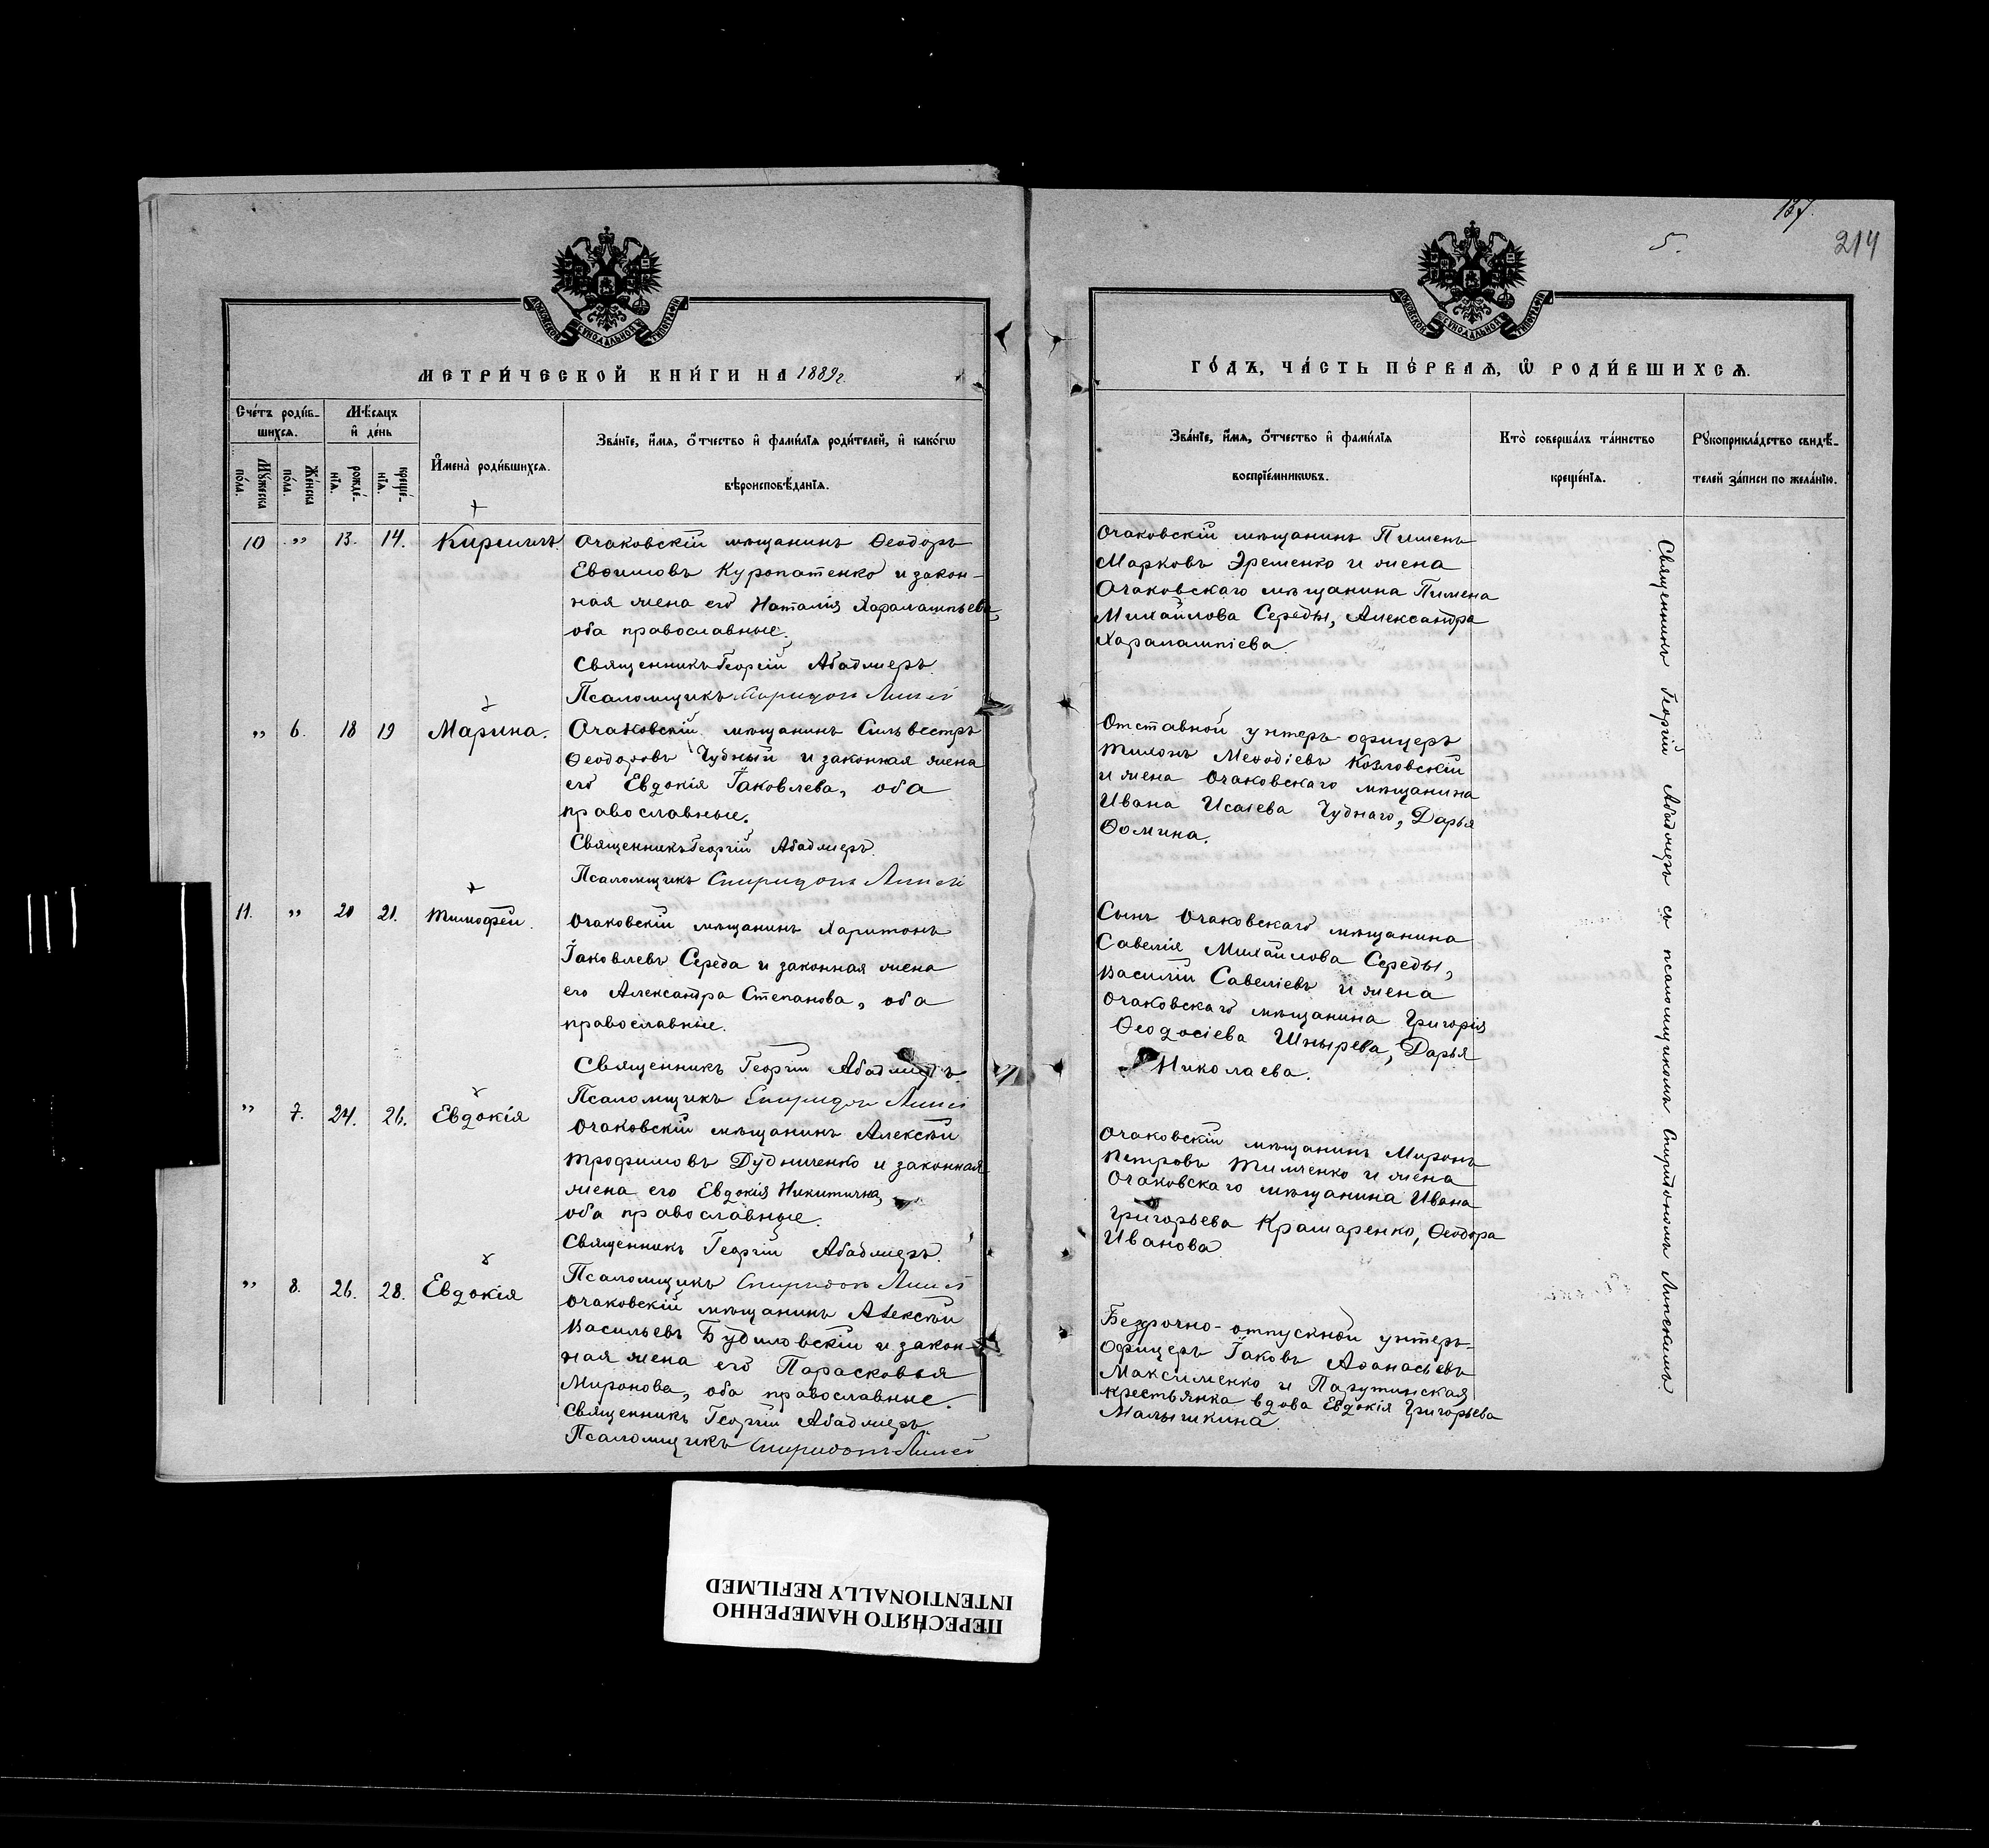 137.
5.
214
МОСКОВСКОЙ СѴНОДАЛЬНОЙ ТИПОГРАФІИ
МЕТРИ́ЧЕСКОЙ КНИ́ГИ НА 1889г.
Сче́тъ роди́в-
шихся.
Мѣ́сяцъ
и҆ де́нь
Мꙋ́жеска
по́ла.
Же́нска
по́ла.
рожде́-
нїя.
креще́-
нїя.
И҆мена̀ роди́вшихся.
Зва́нїе, и҆́мя, ѻ҆́тчество и҆ фами́лїя роди́телей, и҆ како́гѡ
вѣроисповѣ́данїя.
10 „ 13. 14. Кириллъ.
Очаковскій мѣщанинъ Ѳеодоръ
Евѳимовъ Куропатенко и закон-
ная жена его Наталія Харалампьева,
оба православные.
Священникъ Георгій Абаджеръ.
Псаломщикъ Спиридонъ
„ 6. 18 19 Марина.
Очаковскій мѣщанинъ Сильвестръ
Ѳеодоровъ Чудный и законная жена
его Евдокія Іаковлева, оба
православные.
Священникъ Георгій Абаджеръ.
Псаломщикъ Спиридонъ
11. „ 20 21. Тимофей.
Очаковскій мѣщанинъ Харитонъ
Іаковлевъ Середа и законная жена
его Александра Степанова, оба
православные.
Священникъ Георгій Абаджеръ.
Псаломщикъ Спиридонъ
„ 7. 24. 26. Евдокія
Очаковскій мѣщанинъ Алексѣй
Трофимовъ Дудниченко и законная
жена его Евдокія Никитична,
оба православные.
Священникъ Георгій Абаджеръ.
Псаломщикъ Спиридонъ
„ 8. 26. 28. Евдокія
Очаковскій мѣщанинъ Алексѣй
Васильевъ Будиловскій и закон-
ная жена его Парасковья
Миронова, оба православные.
Священникъ Георгій Абаджеръ.
Псаломщикъ Спиридонъ
МОСКОВСКОЙ СѴНОДАЛЬНОЙ ТИПОГРАФІИ
ГО́ДЪ, ЧА́СТЬ ПЕ́РВАЯ, Ѡ҆ РОДИ́ВШИХСЯ.
Зва́нїе, и҆́мя, ѻ҆́тчество и҆ фами́лїя
воспрїе́мникѡвъ.
Кто̀ соверша́лъ та́инство
креще́нїя.
Рꙋкоприкла́дство свидѣ́-
телей за́писи по жела́нїю.
Очаковскій мѣщанинъ Пименъ
Марковъ Эременко и жена
Очаковскаго мѣщанина Пимена
Михайлова Середы, Александра
Харалампіева.
Отставной унтеръ-офицеръ
Тихонъ Меѳодіевъ Козловскій
и жена Очаковскаго мѣщанина
Ивана Исаіева Чуднаго, Дарья
Ѳомина.
Сынъ Очаковскаго мѣщанина
Савелія Михайлова Середы,
Василій Савеліевъ и жена
Очаковскаго мѣщанина Григорія
Ѳеодосіева Шнырева, Дарья
Николаева.
Очаковскій мѣщанинъ Миронъ
Петровъ Тимченко и жена
Очаковскаго мѣщанина Ивана
Григорьева Крамаренко, Ѳеодора
Иванова.
Безсрочно-отпускной унтеръ-
офицеръ Іаковъ Аѳанасьевъ
Максименко и Парутинская
крестьянка вдова Евдокія Григорьева
Малышкина.
Священникъ Георгій Абаджеръ съ псаломщикомъ Спиридономъ
ПЕРЕСНЯТО НАМЕРЕННО
INTENTIONALLY REFILMED